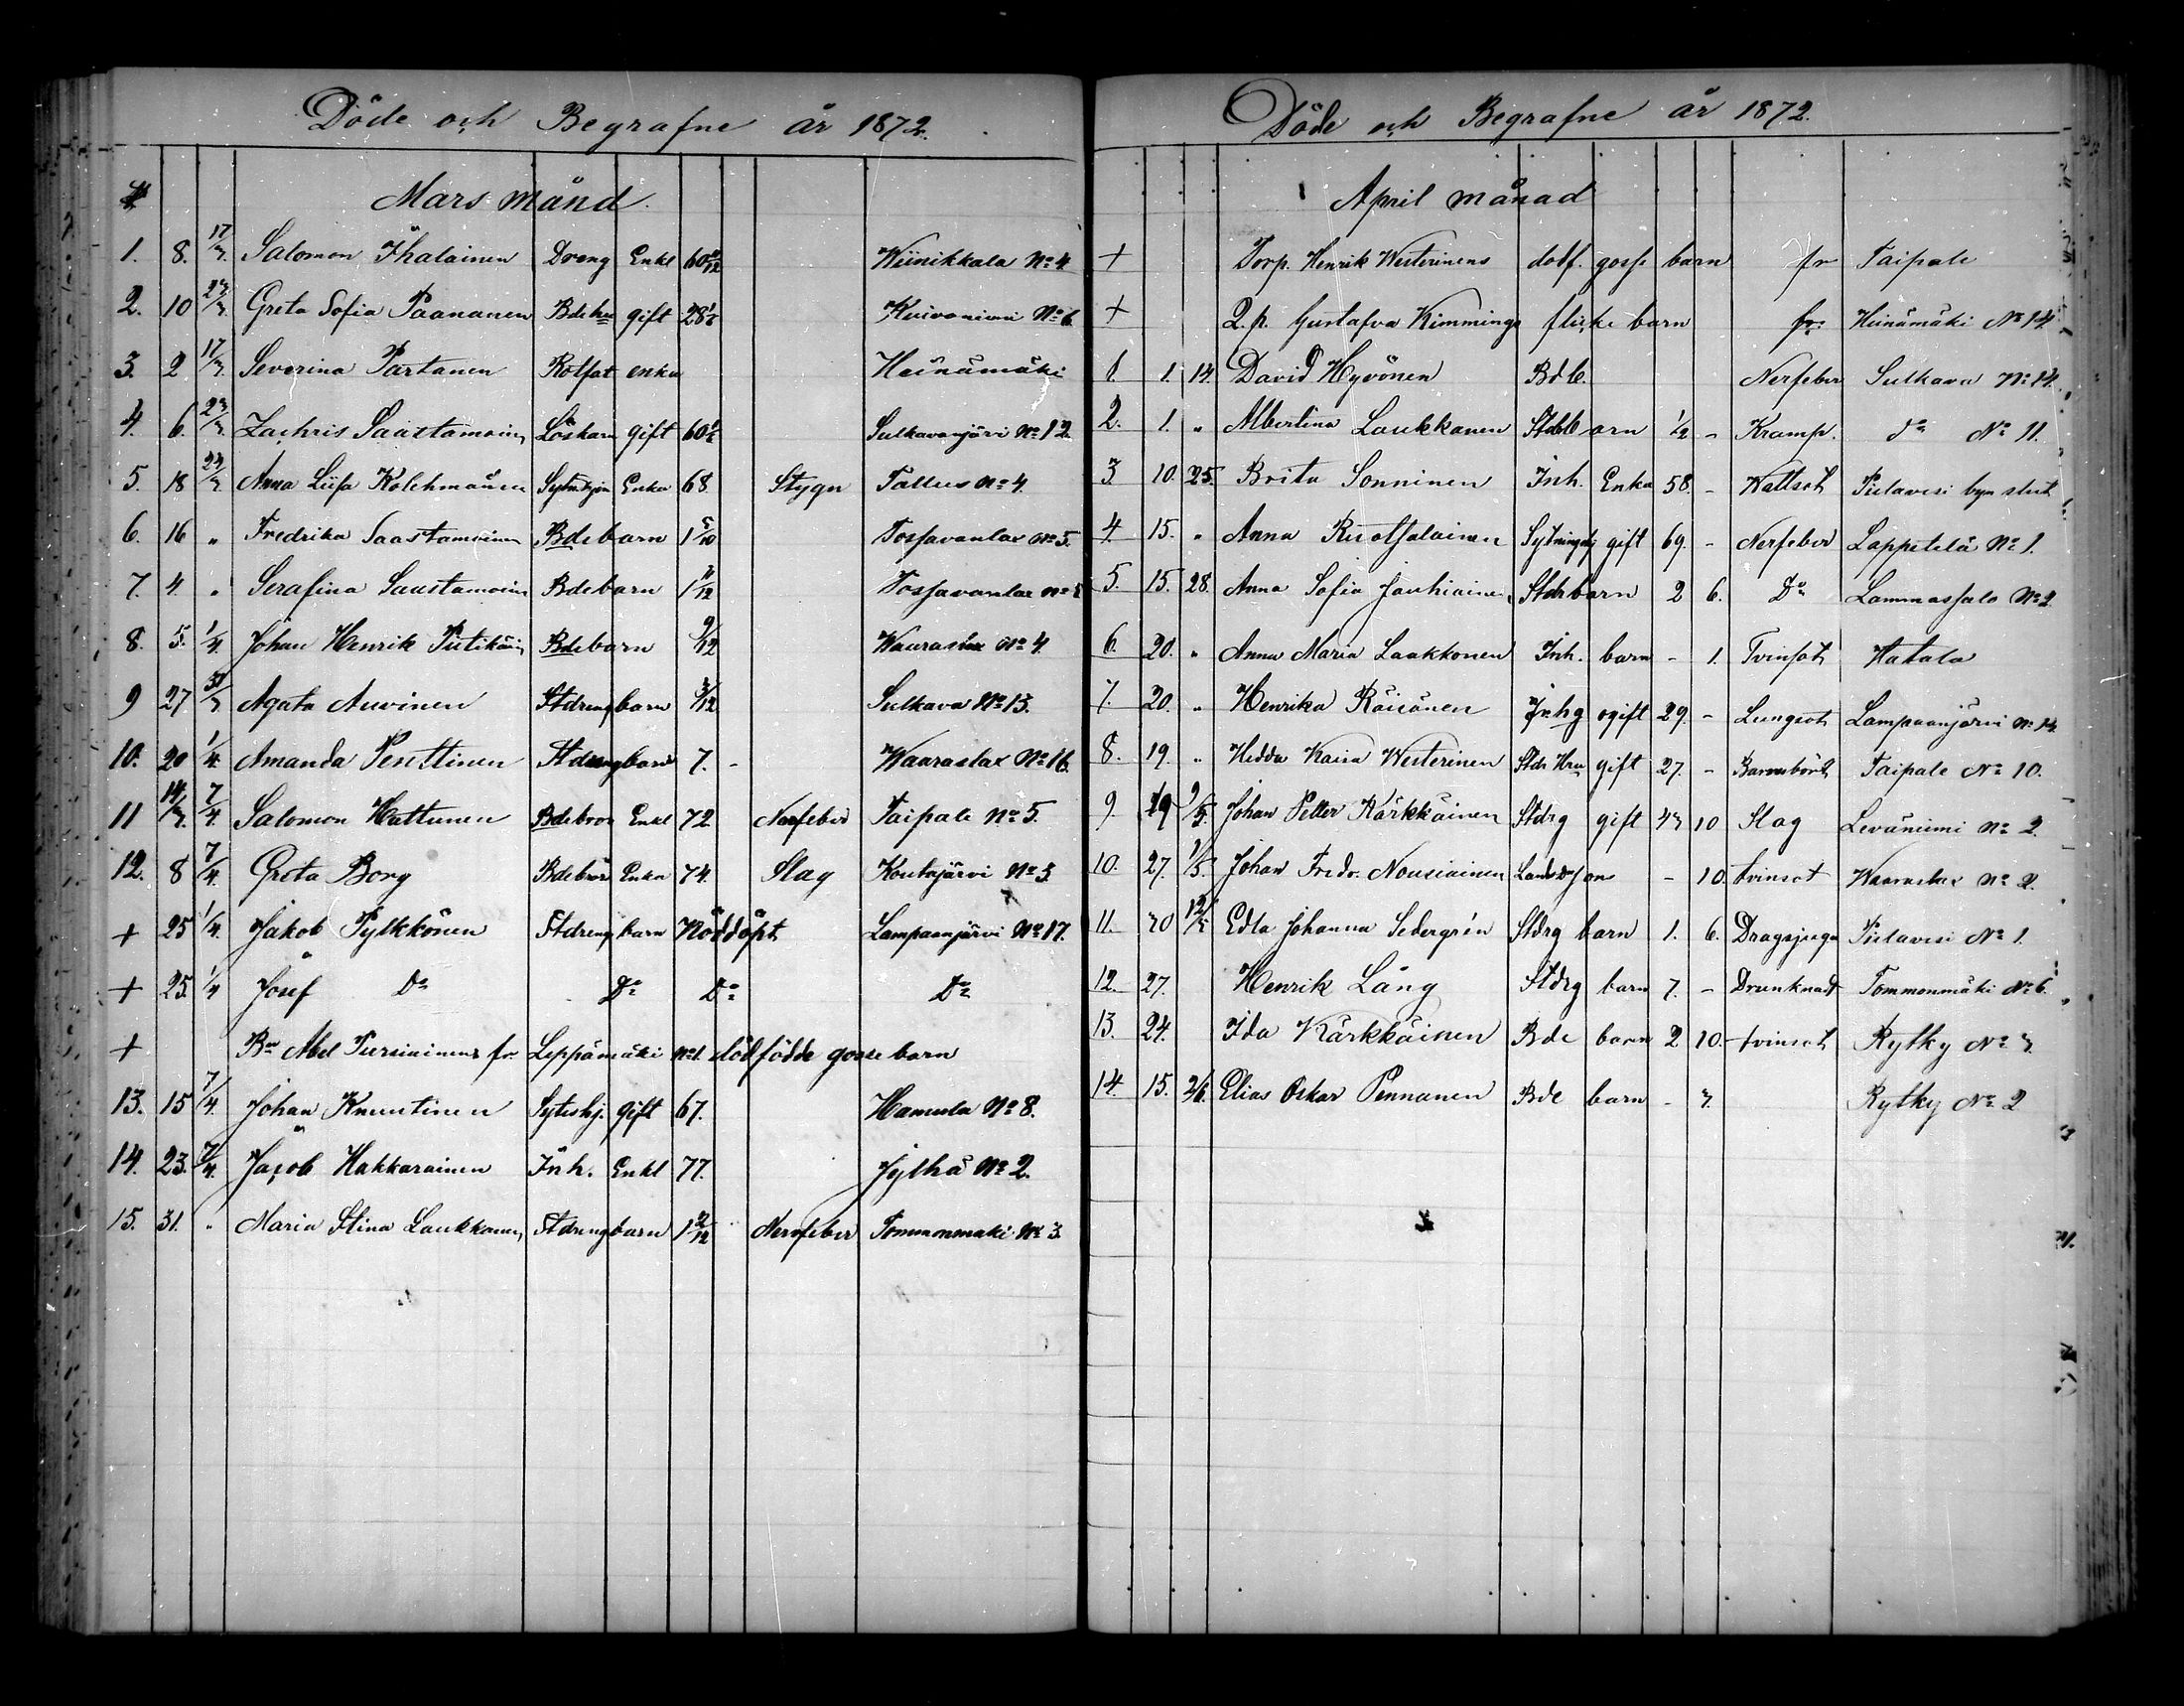 Döde och Begrafne år 1872.
Mars månd.
1. 8. 17/3. Salomon Ihalainen Dreng Enkl 60 Wiinikkala No 4.
2. 10 23/3. Greta Sofia Paananen Bdehu gift 28 Kuivaniemi No 6.
3. 2 17/3. Severina Partanen Rotfat enka Heinämäki
4. 6. 23/3. Zachris Saastamoin Löskarn gift 60 Sulkavanjärvi No 12.
5. 18 24/3. Anna Liisa Kolehmainen Enka 68. Stygn Tallus No 4.
6. 16 " Fredrika Saastamoinen Bdebarn 1 5/10 Tossavanlax No 5.
7. 4. " Serafina Saastamoin Bdebarn 1 11/12 Tossavanlax No 5
8. 5. 1/4. Johan Henrik Piitikäin Bdebarn 9/12 Waaraslax No 4.
9 27. 31/3 Agata Auvinen Stdreng barn 3/12 Sulkava No 13.
10. 20 1/4. Amanda Penttinen Stdreng barn 7. - Waaraslax No 16.
11 14/3. 7/4. Salomon Hattunen Bdebror Enkl 72 Nerfeber Taipale No 5.
12. 8 7/4. Greta Borg Enka 74. Slag Koutajärvi No 3.
+ 25 1/4. Jakob Pylkkönen Stdreng barn Nöddöpt Lampaanjärvi No 17.
+ 25. 1/4 Josef Do Do Do Do
+ Bn Abel Pursiainens fr Leppämäki No 1. dödfödde gosse barn
13. 15 7/4. Johan Knuutinen Sytnhj. gift 67. Hamula No 8.
14. 23. 7/4. Jacob Hakkarainen Inh. Enkl 77. Jylhä No 2.
15. 31. " Maria Stina Laukkanen Stdreng barn 1 2/12 Nervfeber Tommonmäki No 3.
Döde och Begrafne år 1872.
April månad
+ Torp. Henrik Westerinens dödf. gosse barn fr Taipale
+ Q.p. Gustafva Kimmings flicke barn fr Heinämäki No 14.
1. 1. 14. David Hyvönen Bde. Nerfeber Sulkava No 14.
2. 1. " Albertina Laukkanen Stdb barn 1/2 - Kramp. do No 11.
3 10. 25. Brita Sonninen Inh. Enka 58. - Wattsot Pielavesi byn slut
4. 15. " Anna Ruotsalainen Sytningshj gift 69. - Nerfeber Lappetelä No 1.
5. 15. 28. Anna Sofia Jauhiainen Stdr barn 2 6. Do Lammassalo No 2
6. 20. " Anna Maria Laakkonen Inh. barn - 1. Tvinsot Hatala
7. 20. " Henrika Räisänen Inhg ogift 29. - Lungsot Lampaanjärvi No 14.
8. 19. " Hedda Kaisa Westerinen Stdr Hru gift 27. - Barnsbörd Taipale No 10.
9. 19 9/5. Johan Petter Kärkkäinen Stdrg gift 43 10 Slag Leväniemi No 2.
10. 27. 1/5. Johan Fredr. Nousiainen - 10. tvinsot Waaraslax No 2.
11. 30 12/5 Edla Johanna Sedergrén Stdrg barn 1. 6. Dragsjuga Pielavesi No 1.
12. 27. Henrik Lång Stdrg barn 7. - Drunknadt Tommonmäki No 6.
13. 24. Ida Kärkkäinen Bde barn 2 10. tvinsot Rytky No 3.
14. 15. 26. Elias Oskar Pennanen Bde barn - 3. Rytky No 2